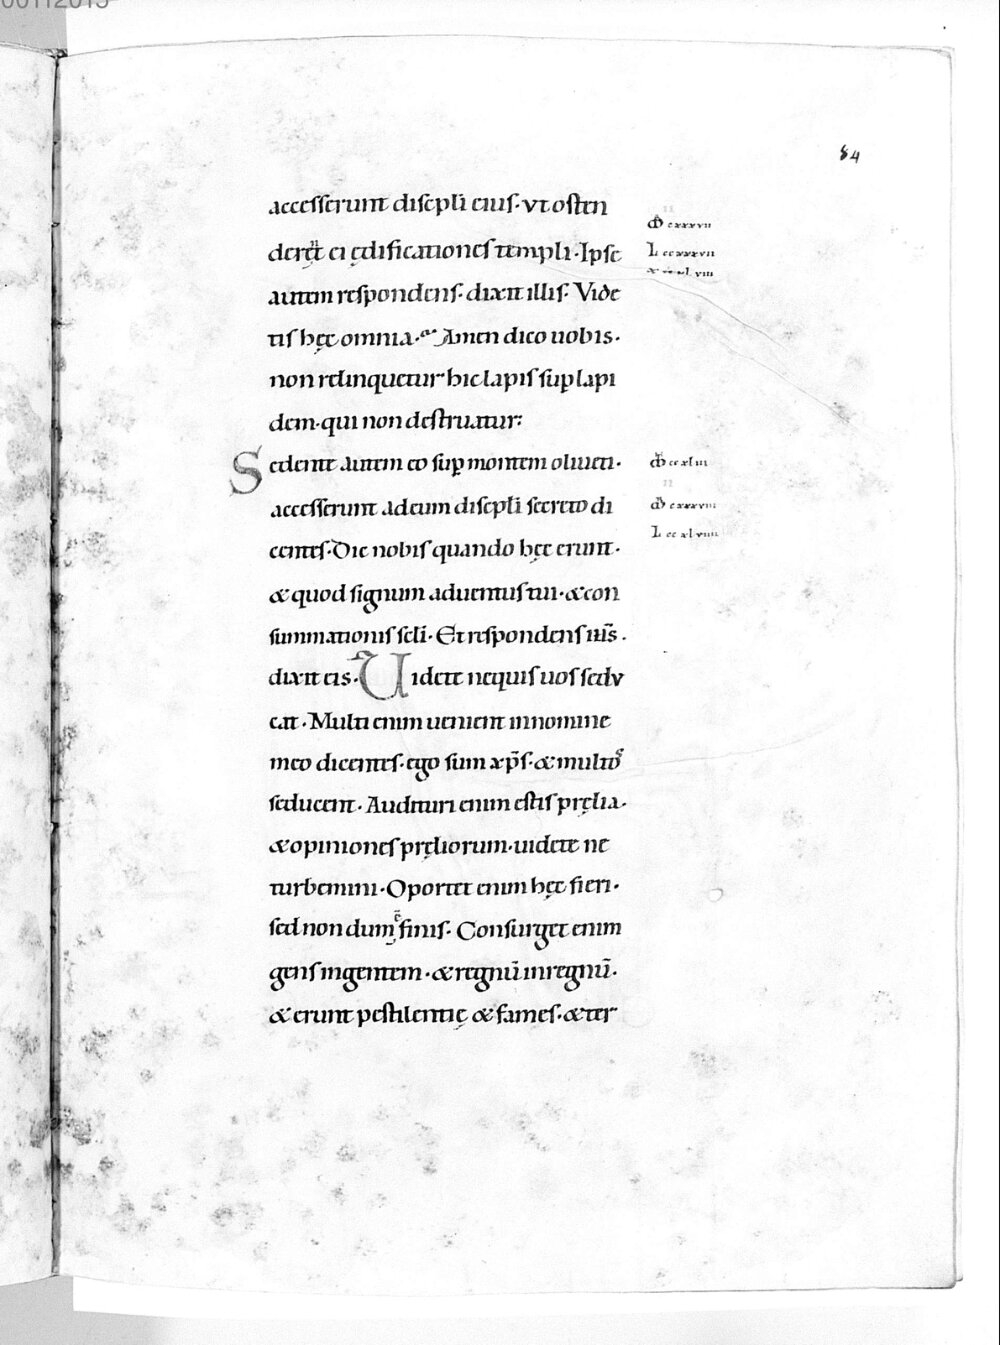 84
accesserunt discipłi eius· vt osten
derẽt ei ędificationes templi· Ipse
autem respondens· dixit illis· Vide
tis hęc omnia· Amen dico uobis·
non relinquetur hic lapis sup lapi
dem· qui non destruatur:
Sedente autem eo sup montem oliueti·
accesserunt ad eum discpłi secreto di
centes· Dic nobis quando hęc erunt·
& quod signum aduentus tui· & con
summationis scłi· Et respondens ihs̄·
dixit eis· Videte nequis uos sedu
cat· Multi enim uenient innomine
meo dicentes· ego sum xp̄s· & multos
seducent· Audituri enim estis pręlia·
& opiniones pręliorum· uidete ne
turbemini· Oportet enim hęc fieri·
sed non dum ē finis· Consurget enim
gens ingentem· & regnū inregnū·
& erunt pestilentię & fames· & ter